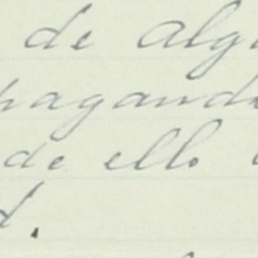 de alg
pagand
de ello
d.